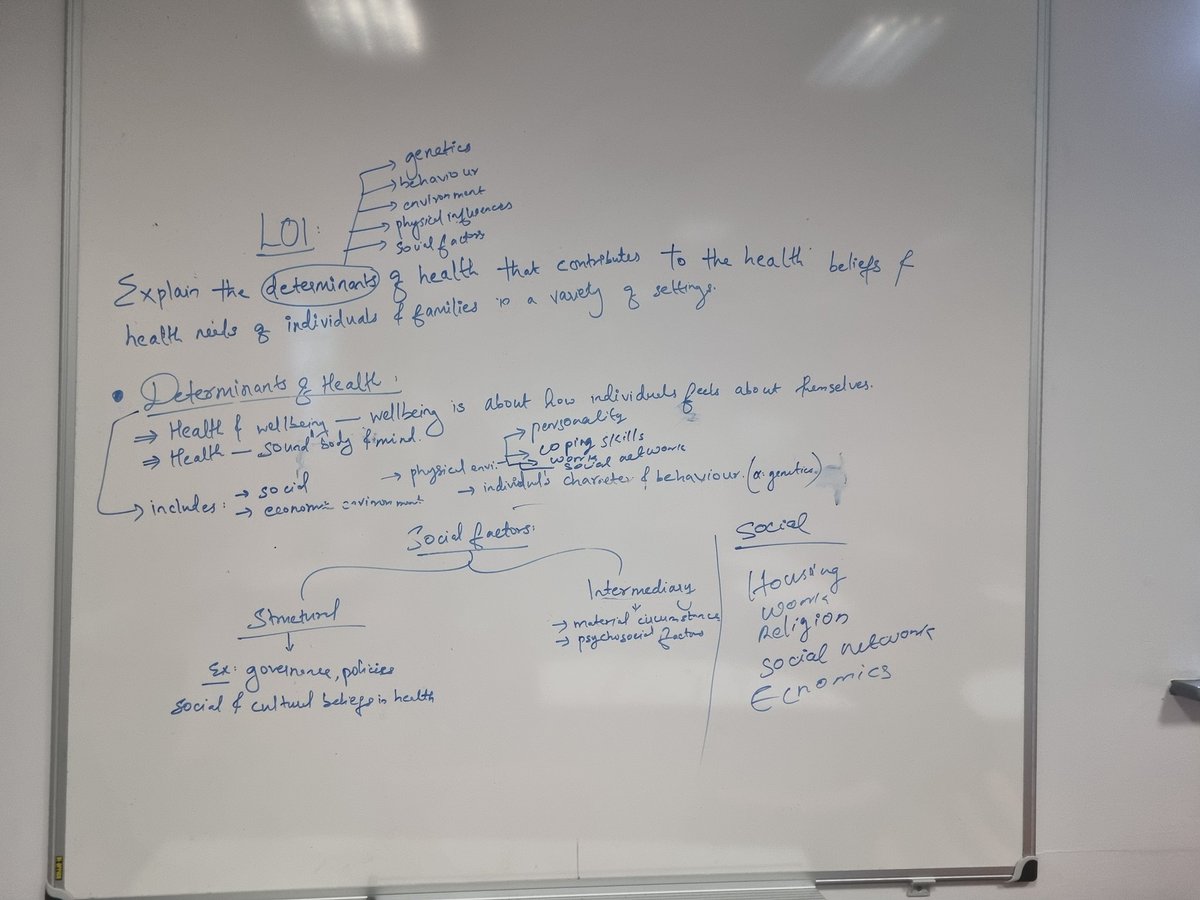 → genetics
→ behaviour
→ environment
→ physical influences
→ social factors
LO1:
Explain the determinants of health that contributes to the health beliefs &
health needs of individuals & families in a variety of settings.
• Determinants of Health:
⇒ Health & wellbeing — wellbeing is about how individuals feels about themselves.
⇒ Health — sound body & mind.
→ personality
→ coping skills
→ work
social network
→ physical envi.
→ includes: → social
→ economic environment
→ individual's character & behaviour. (or genetics.)
Social factors:
Structural
Ex: governence, policies
social & cultural beliefs in health
Intermediary
→ material circumstance
→ psychosocial factors
Social
Housing
work
Religion
social network
Ecnomics